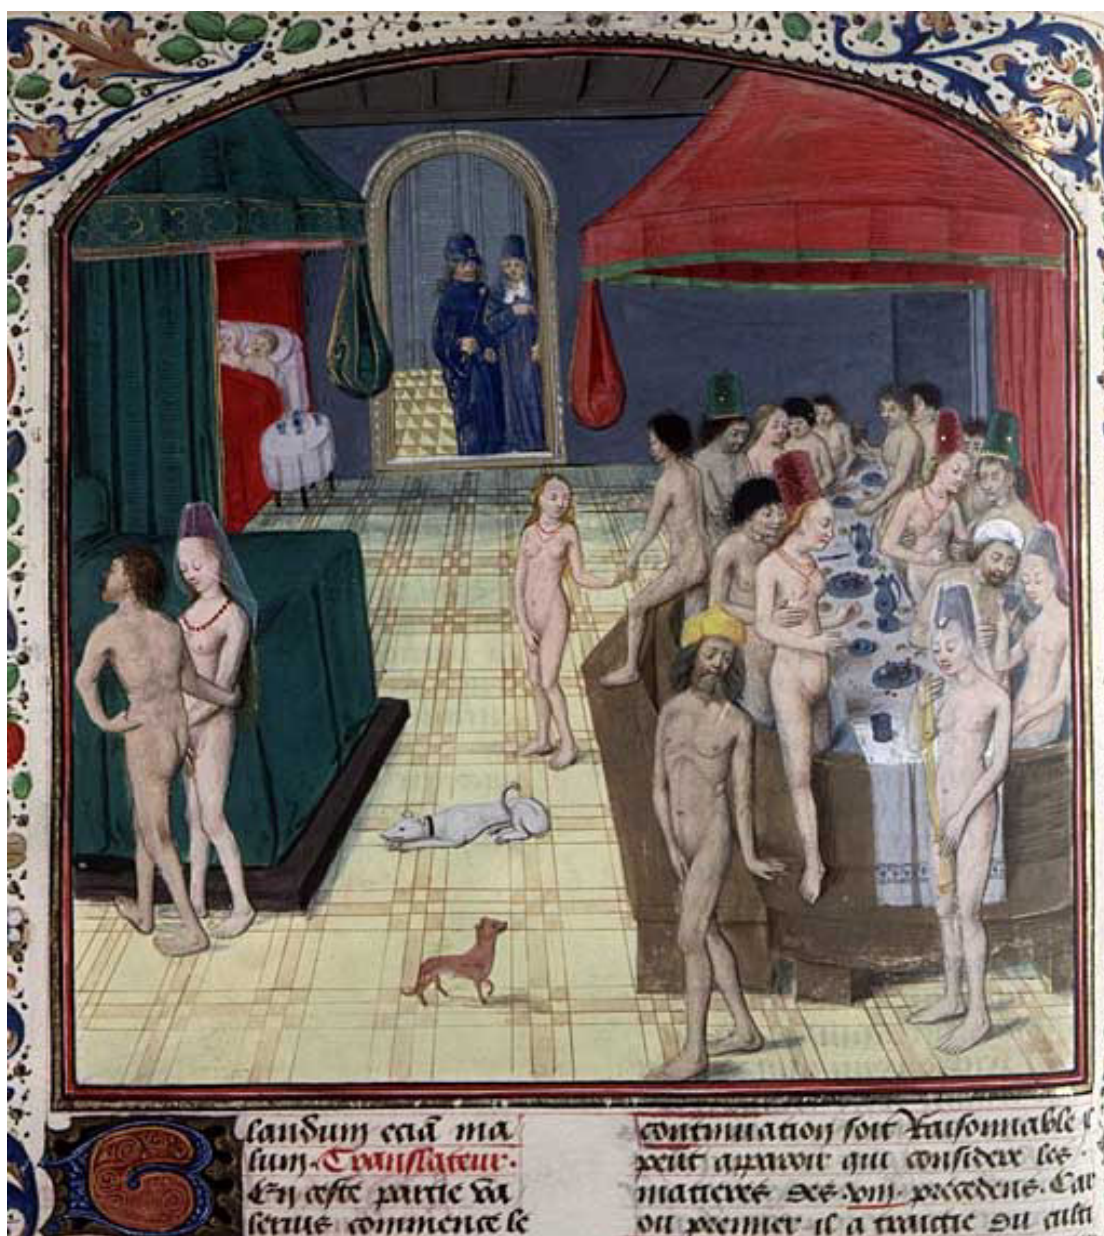 Blandum eciā ma
lum. Translateur.
En ceste partie Va
lerius commence le
continuation soit Raisonnable
peut apparoir qui considere les
matieres des .viii. precedens. Car
ou premier il a traictie du culti